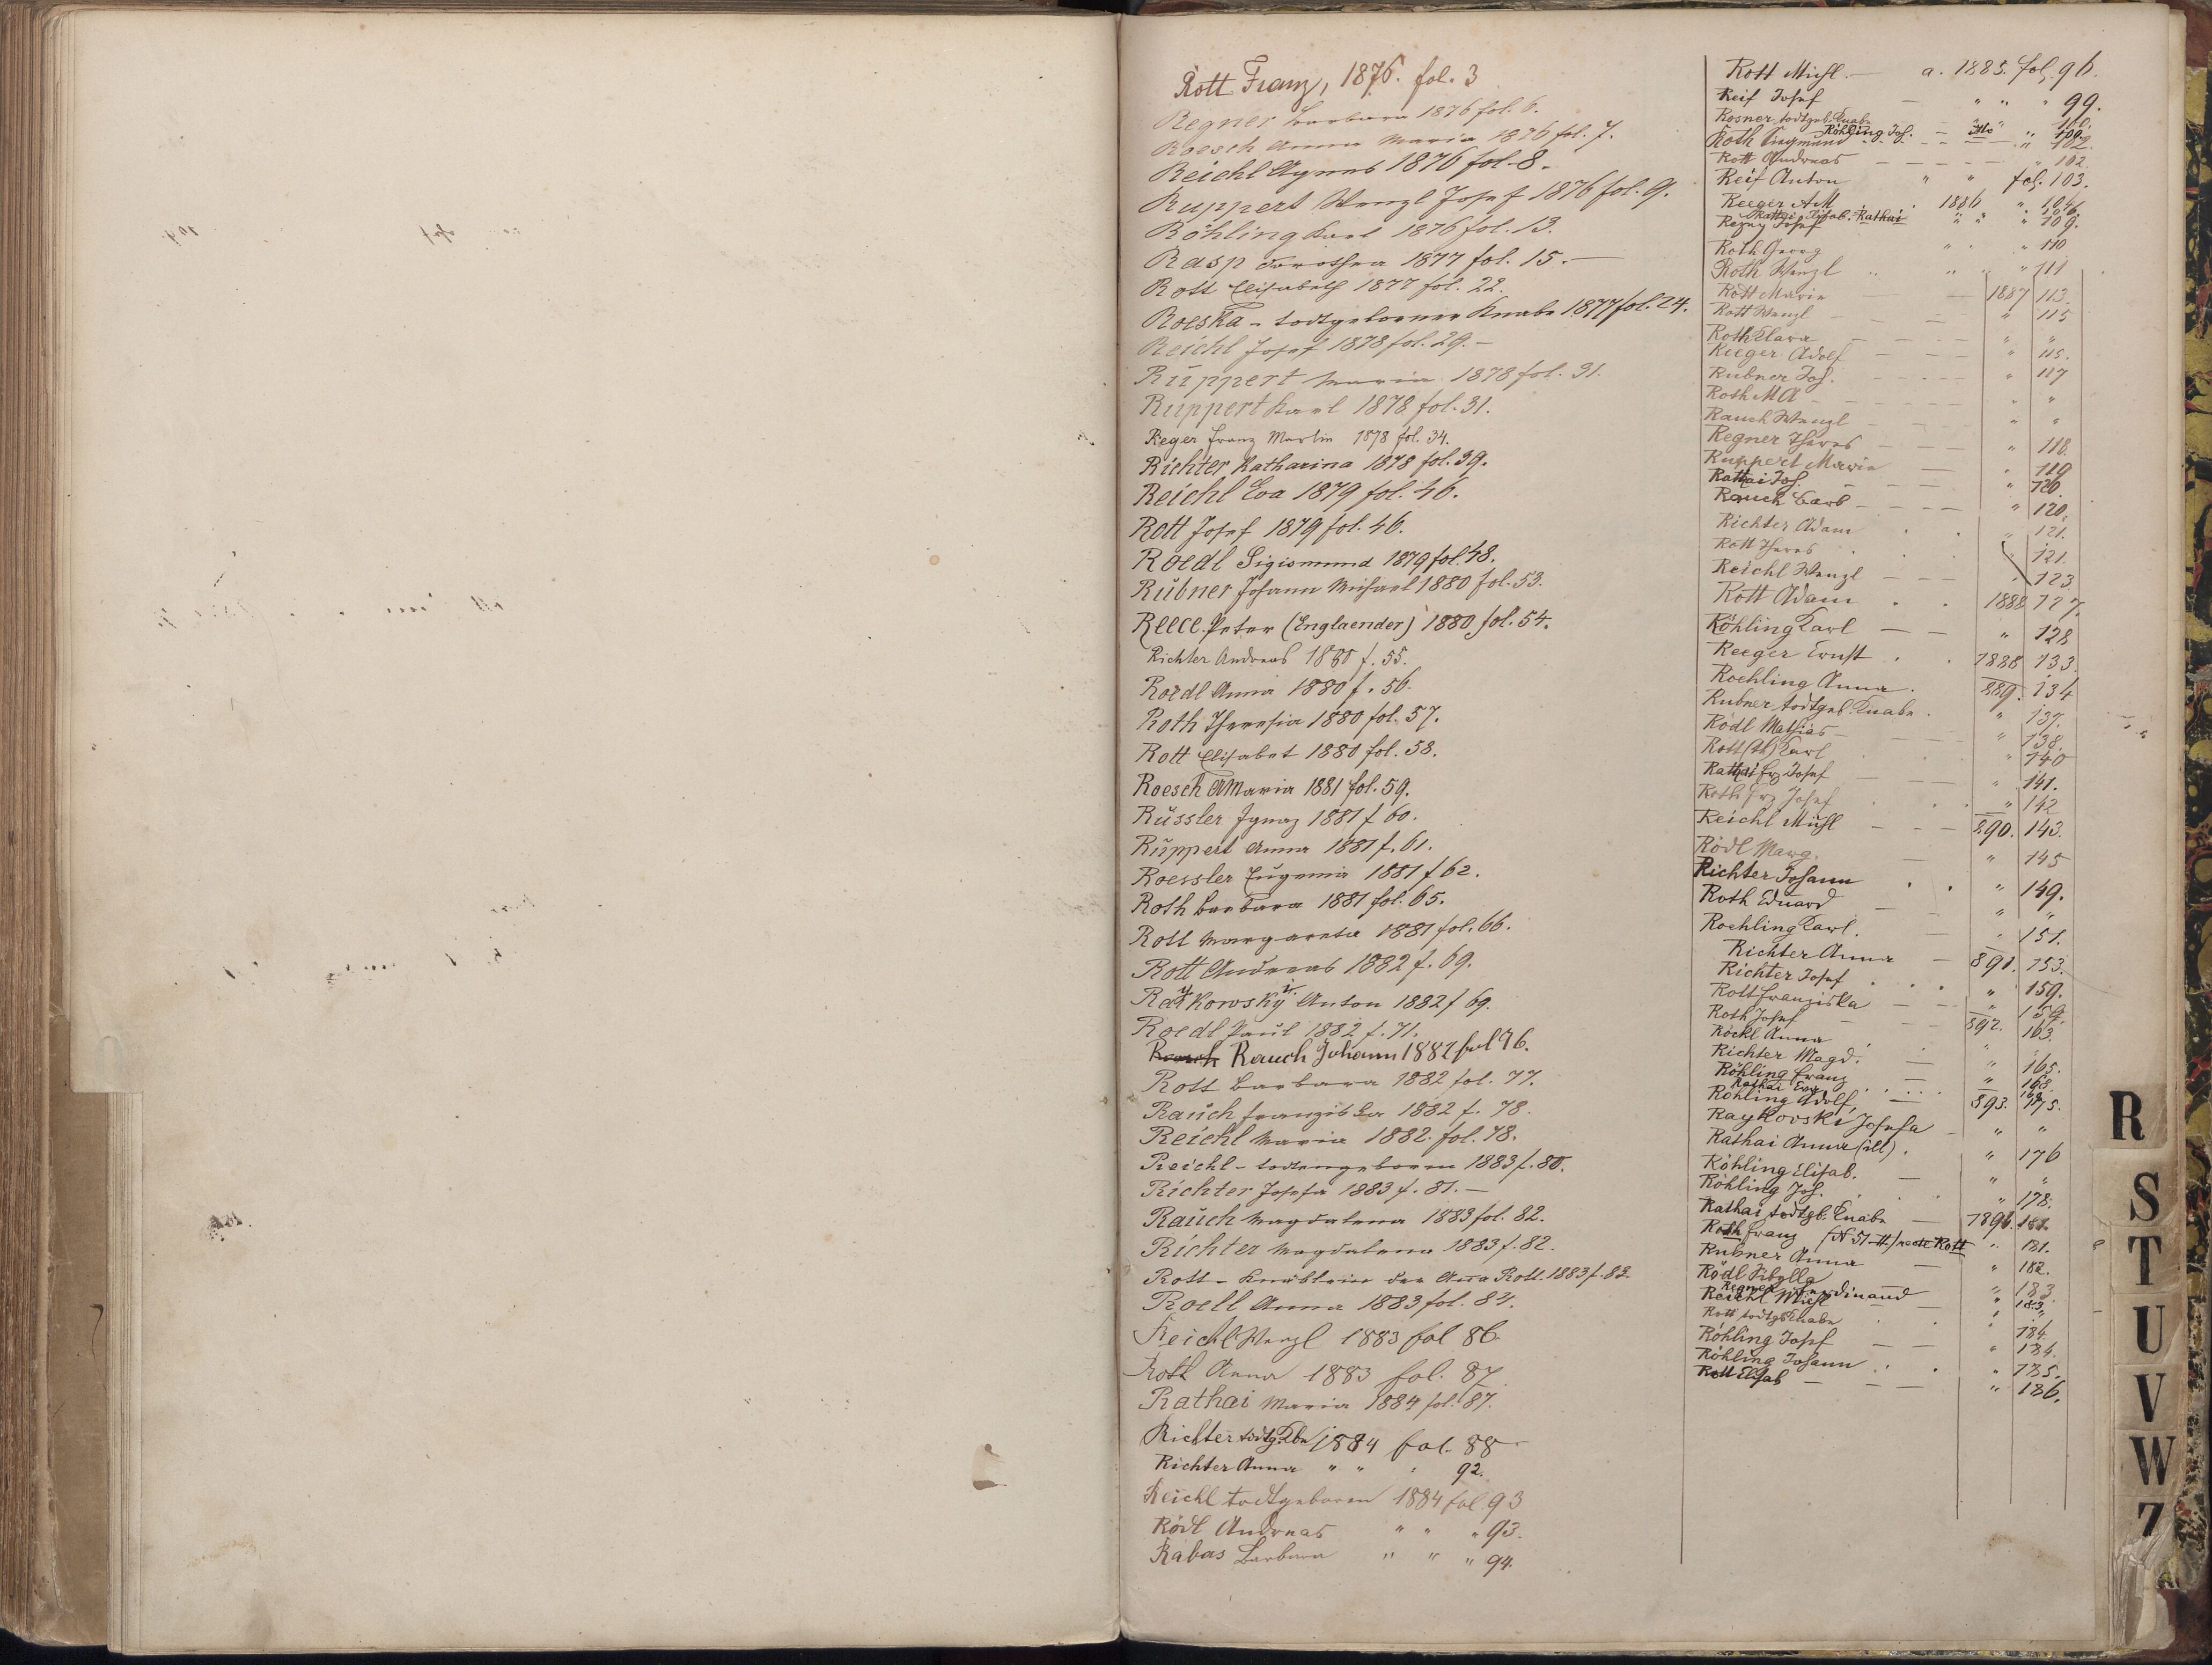 Rott Franz, 1876. fol. 3
Regner Barbara 1876 fol. 6.
Roesch Anna Maria 1876 fol. 7.
Reichl Agnes 1876 fol. 8.
Ruppert Wenzl Josef 1876 fol. 9.
Röhling Karl 1876 fol. 13.
Rasp Dorothea 1877 fol. 15.—
Rott Elisabeth 1877 fol. 22.
Roeska - todtgeborner Knabe 1877 fol. 24.
Reichl Josef 1878 fol. 29.—
Ruppert Maria 1878 fol. 31.
Ruppert Karl 1878 fol. 31.
Reger Franz Martin 1878 fol. 34.
Richter Katharina 1878 fol. 39.
Reichl Eva 1879 fol. 46.
Rott Josef 1879 fol. 46.
Roedl Sigismund 1879 fol. 48.
Rubner Johann Michael 1880 fol. 53.
Reece Peter (Englaender) 1880 fol. 54.
Richter Andreas 1880 f. 55.
Roedl Anna 1880 f. 56.
Roth Theresia 1880 fol. 57.
Rott Elisabet 1880 fol. 58.
Roesch AMaria 1881 fol. 59.
Rüssler Ignaz 1881 f 60.
Ruppert Anna 1881 f. 61.
Roessler Eugenia 1881 f 62.
Roth Barbara 1881 fol. 65.
Rott Margareta 1881 fol. 66.
Rott Andreas 1882 f. 69.
Raykowsky Anton 1882 f 69.
Roedl Paul 1882 f. 71.
Rauch Johann 1882 fol 76.
Rott Barbara 1882 fol. 77.
Rauch Franziska 1882 f. 78.
Reichl Maria 1882. fol. 78.
Reichl - todtengeboren 1883 f. 80.
Richter Josefa 1883 f. 81.—
Rauch Magdalena 1883 fol. 82.
Richter Magdalena 1883 f. 82.
Rott - Knäblein der Anna Rott. 1883 f. 83.
Roell Anna 1883 fol. 84.
Reichl Wenzl 1883 fol 86
Roth Anna 1883 fol. 87
Rathai Maria 1884 fol. 87.
Richter todtg. Kbe 1884 fol. 88
Richter Anna " " " 92.
Reichl todtgeboren 1884 fol 93
Rödl Andreas " " " 93.
Rabas Barbara " " " 94.
Rott Michl.— a. 1885. fol. 96.
Reif Josef — " " " 99.
Rosner todtgeb. Knabe
Röhling Jos.
Roth Siegmund 102.
Rott Andreas — " 102
Reif Anton " " fol. 103.
Reeger A M 1886 " 104.
Rathai
Josef " " " 109.
Roth Georg " " " 110
Roth Wenzl " " " 111
Rott Marie 1887 113.
Rott Wenzl — " 115
Roth Clara — " "
Reeger Adolf — " 115.
Rubner Jos. — " 117
Roth M A — " "
Rauch Wenzl — " "
Regner Theres — " 118.
Ruppert Marie — " 119
Rathai Jos. — " 120
Rauch Barb — " 120.
Richter Adam . " 121.
Rott Theres . " 121.
Reichl Wenzl — " 123
Rott Adam . . 1888 127.
Röhling Karl — " 128
Reeger Ernst . . 1888 133.
Roehling Anna . 889. 134
Rubner todtgeb. Knabe . " 137.
Rödl Mathias — " 138.
Rott Karl . " 140
Rathai Frz Josef — " 141.
Roth Frz Josef . . " 142
Reichl Michl — 890. 143.
Rödl Marg. — " 145
Richter Johann . . " 149.
Roth Eduard — " "
Roehling Karl. — " 151.
Richter Anna — 891. 153.
Richter Josef . . . " 159.
Rott Franziska — " 159.
Roth Josef — 892. 163.
Röckl Anna . "
Richter Magd. — " 165.
Röhling Franz — " 168.
Rathai Eva . . . 168
Röhling Adolf, — 893. 175.
Raykovski Josefa — " "
Rathai Anna (ill) . " 176
Röhling Elisab. — " "
Röhling Jos. . . . " 178.
Rathai todtgb. Knabe — 1896. 181.
Roth Franz (N 51 H.) recte Rott " 181.
Rubner Anna — " 182.
Rödl Sibylla — " 183.
Regner Ferdinand " 183.
Reichl Michl — " "
Rott todtgb Knabe . . " 184.
Röhling Josef — " 184.
Röhling Johann . . " 185.
Rott Elisab — " 186.
R
S
T
U
V
W
Z